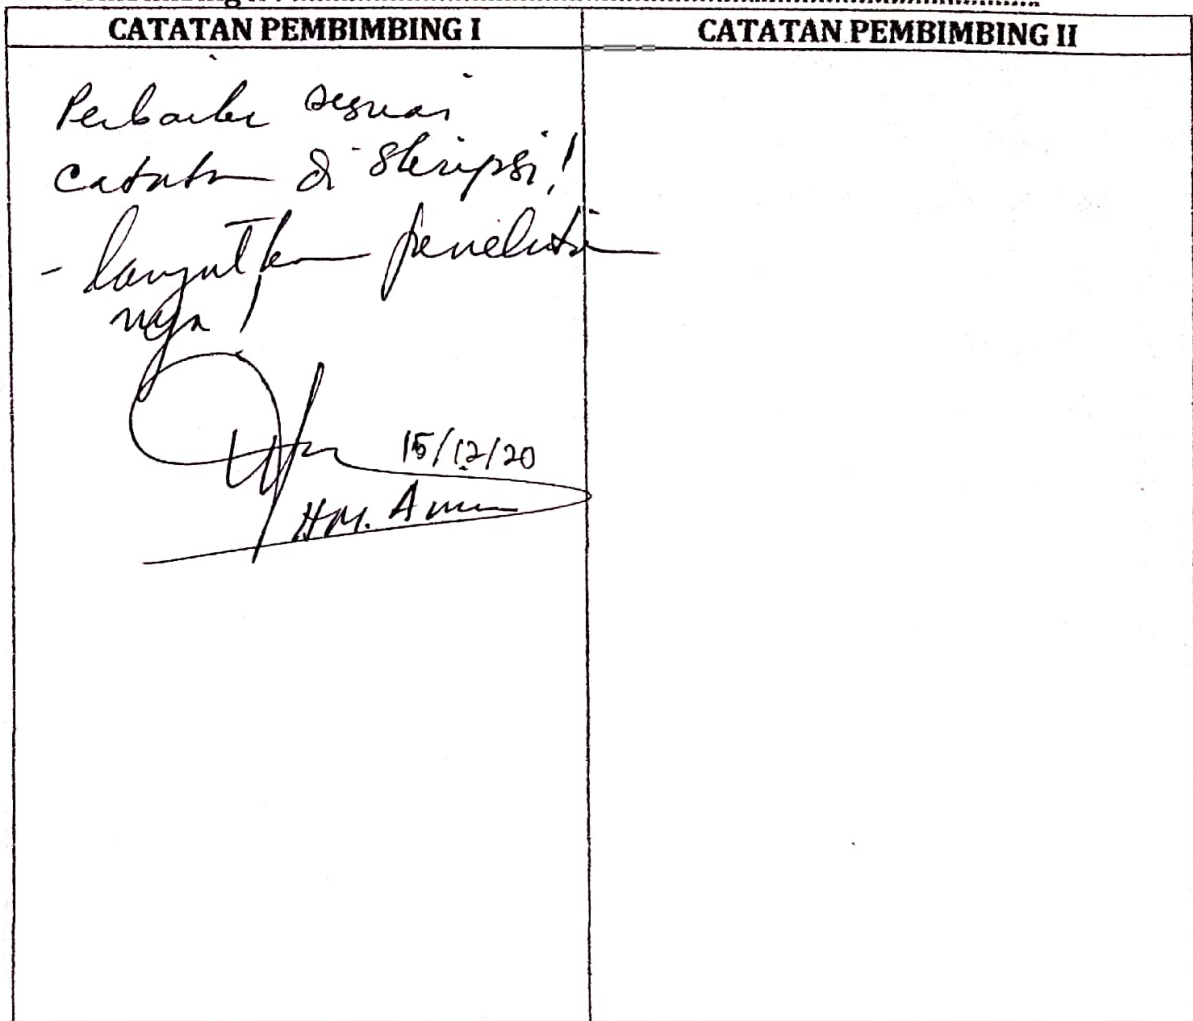 CATATAN PEMBIMBING I
CATATAN PEMBIMBING II
Perbaiki sesuai
catatan di skripsi!
- lanjutkan penelitian
nya!
15/12/20
HM. Amin